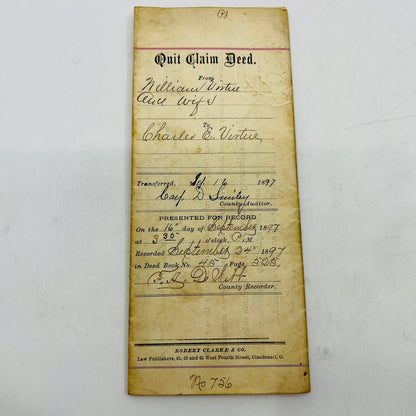 Quit Claim Deed.
From
William Virtue
and Wife
To
Charles E. Virtue
Transferred, Sep 16 1897
Cay D Smiley
County Auditor.
PRESENTED FOR RECORD
On the 16" day of September 1897
at 3 35 o'clock, P. M.
Recorded September 24" 1897
in Deed Book No. 45 Page 525
F. A. DeWitt
County Recorder.
ROBERT CLARKE & CO.
Law Publishers, 61, 63 and 65 West Fourth Street, Cincinnati, O.
No 756